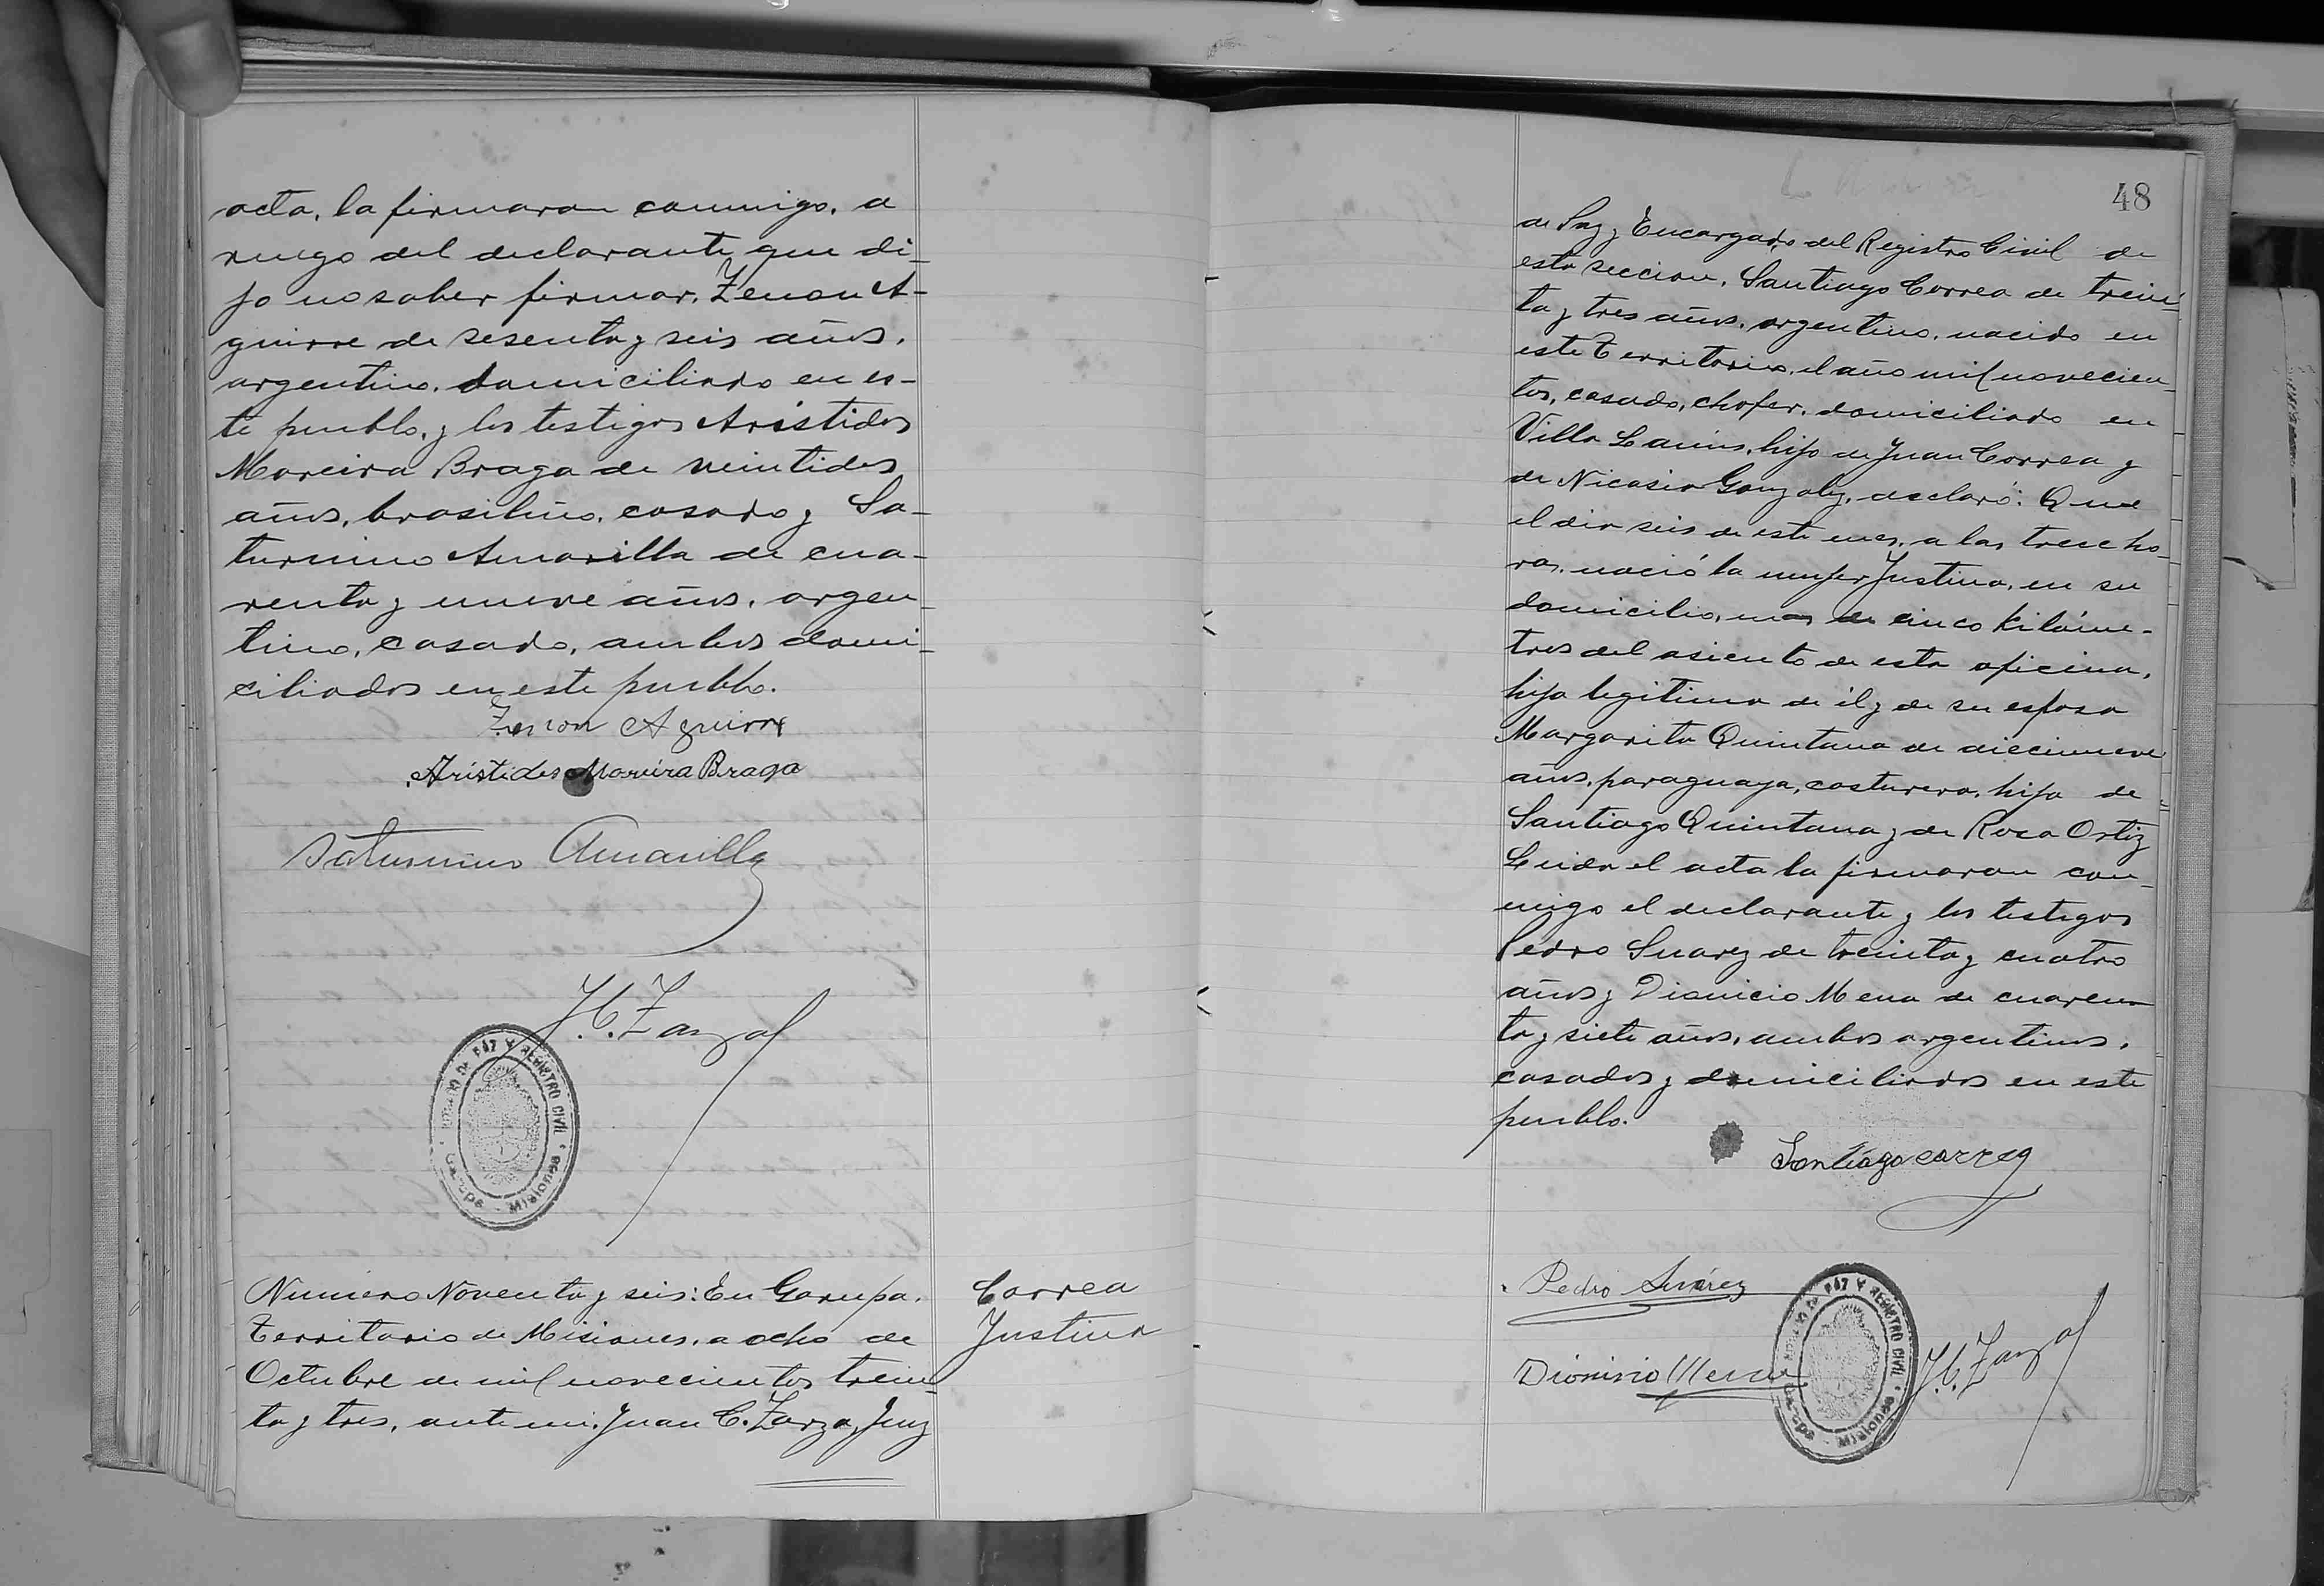 acta, la firmaron conmigo, a
ruego del declarante que di-
jo no saber firmar, Zenon A-
guirre de sesenta y seis años,
argentino, domiciliado en es-
te pueblo, y los testigos Arístides
Moreira Braga de veintidos
años, brasileño, casado y Sa-
turnino Amarilla de cua-
renta y nueve años, argen-
tino, casado, ambos domi-
ciliados en este pueblo.
Zenon Aguirre
Arístides Moreira Braga
Saturnino Amarilla
J. C. Zarza
JUZGADO DE PAZ Y REGISTRO CIVIL
Garupá - Misiones
Numero Noventa y seis: En Garupa,
Territorio de Misiones, a ocho de
Octubre de mil novecientos trein-
ta y tres, ante mi, Juan C. Zarza, Juez
Correa
Justina
48
de Paz y Encargado del Registro Civil de
esta seccion, Santiago Correa de trein-
ta y tres años, argentino, nacido en
este Territorio, el año mil novecien-
tos, casado, chofer, domiciliado en
Villa Lanús, hijo de Juan Correa y
de Nicasia Gonzalez, declaró: Que
el dia seis de este mes, a las trece ho-
ras, nació la mujer Justina, en su
domicilio, mas de cinco kilóme-
tros del asiento de esta oficina,
hija legitima de él y de su esposa
Margarita Quintana de diecinueve
años, paraguaya, costurera, hija de
Santiago Quintana y de Rosa Ortiz
Leida el acta la firmaron con-
migo el declarante y los testigos
Pedro Suarez de treinta y cuatro
años y Dionicio Mena de cuaren-
ta y siete años, ambos argentinos,
casados y domiciliados en este
pueblo.
Santiago correa
Pedro Suárez
Dionisio Mena
J. C. Zarza
JUZGADO DE PAZ Y REGISTRO CIVIL
Garupá - Misiones